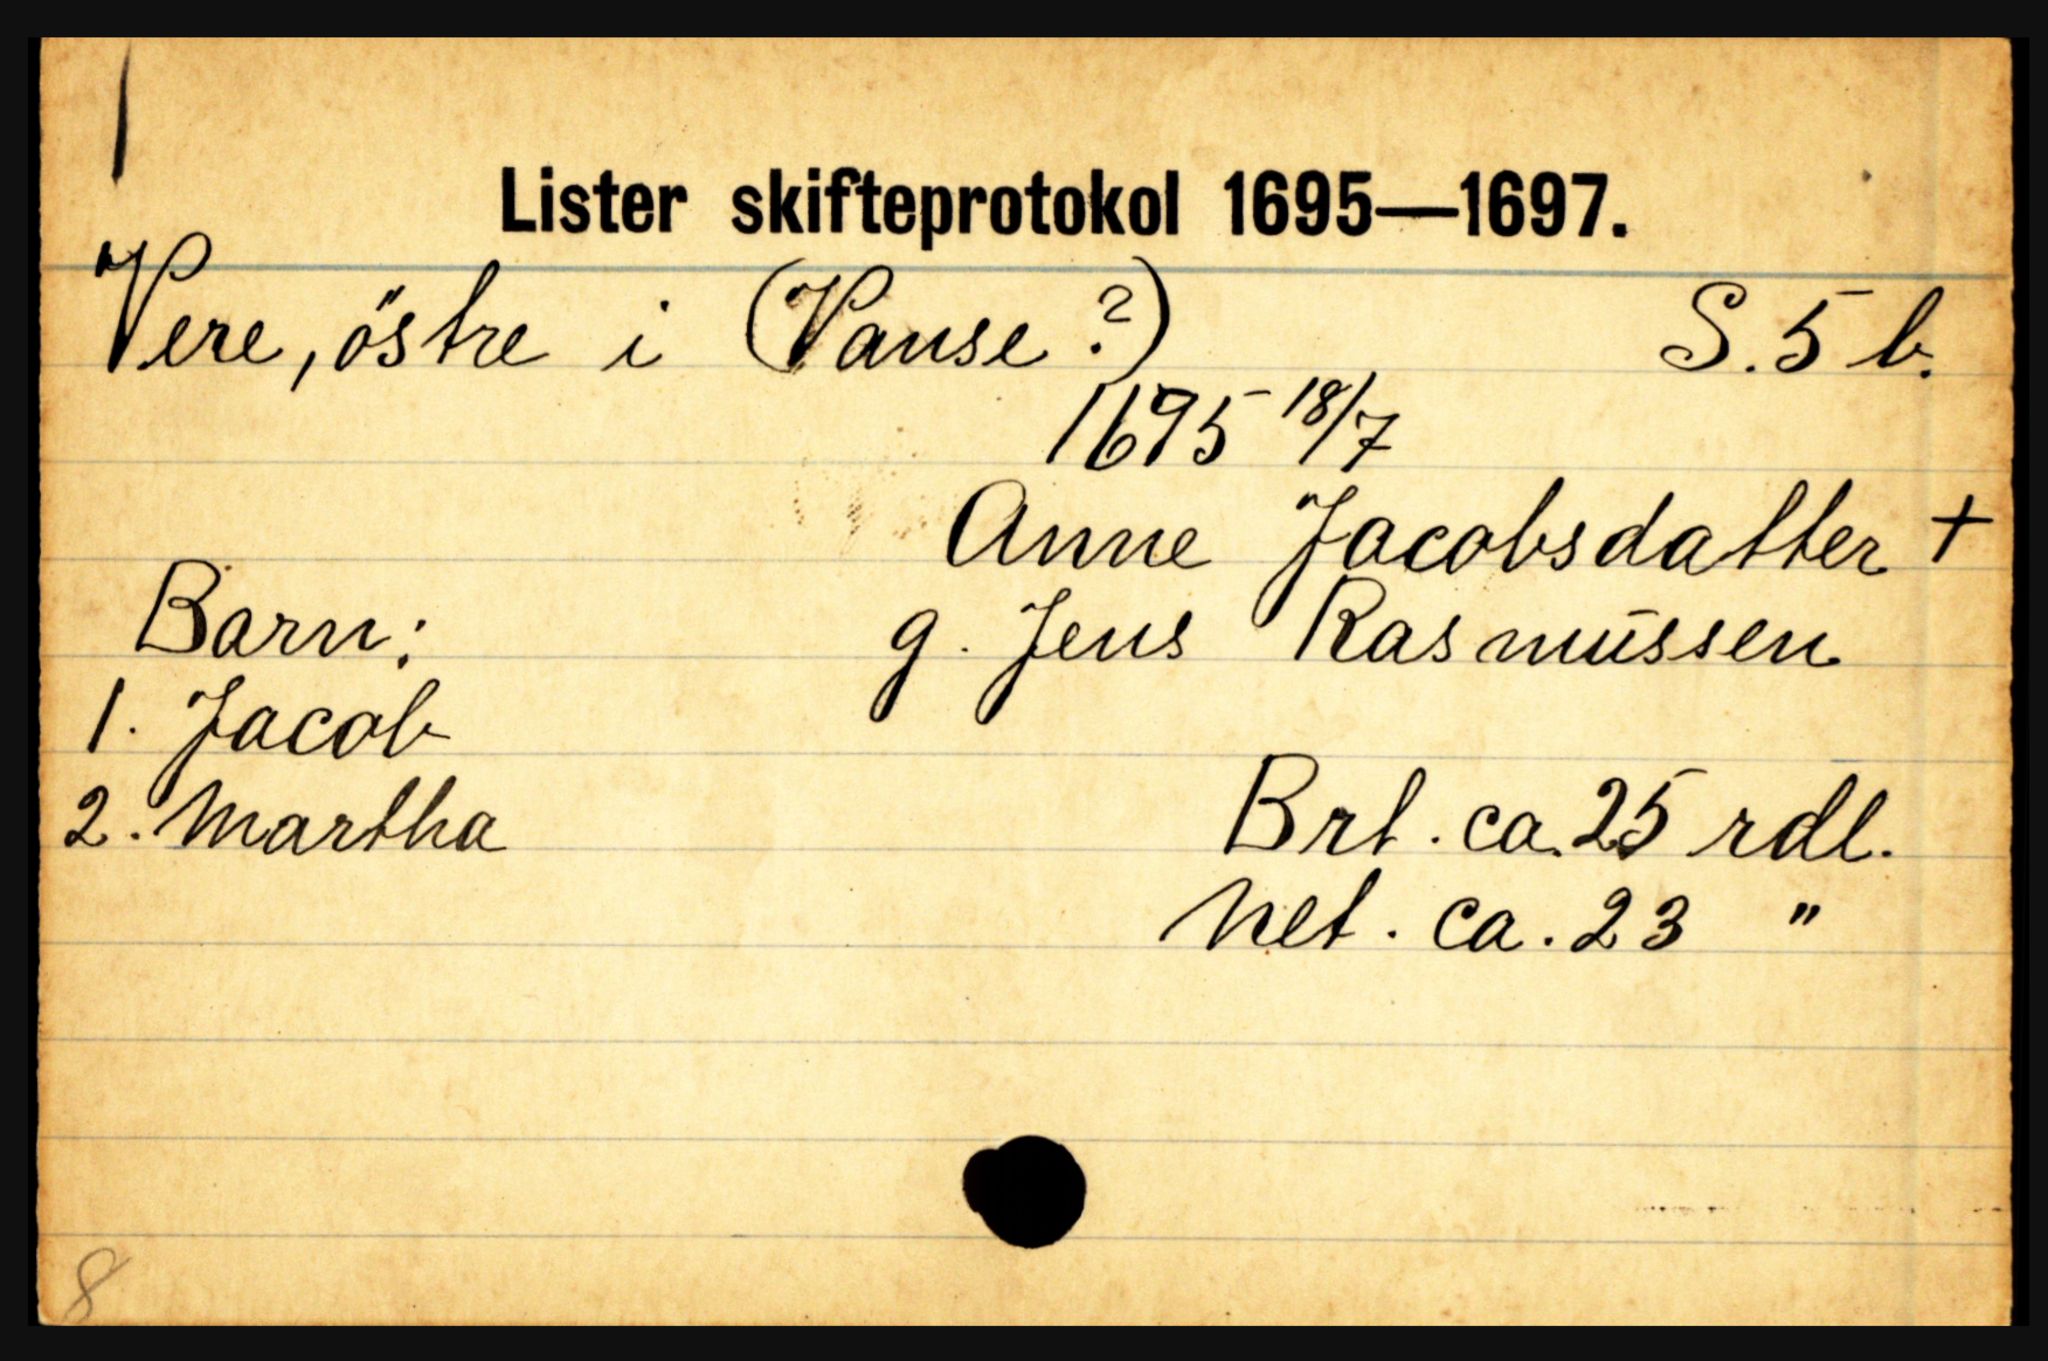 Lister skifteprotokol 1695—1697.
Vere, östre i (Vanse?) S. 5 b.
1695 18/7
Anne Jacobsdatter +
Barn:
g. Jens Rasmussen
1. Jacob
2. Martha
Brt. ca. 25 rdl.
Net. ca. 23 "
8